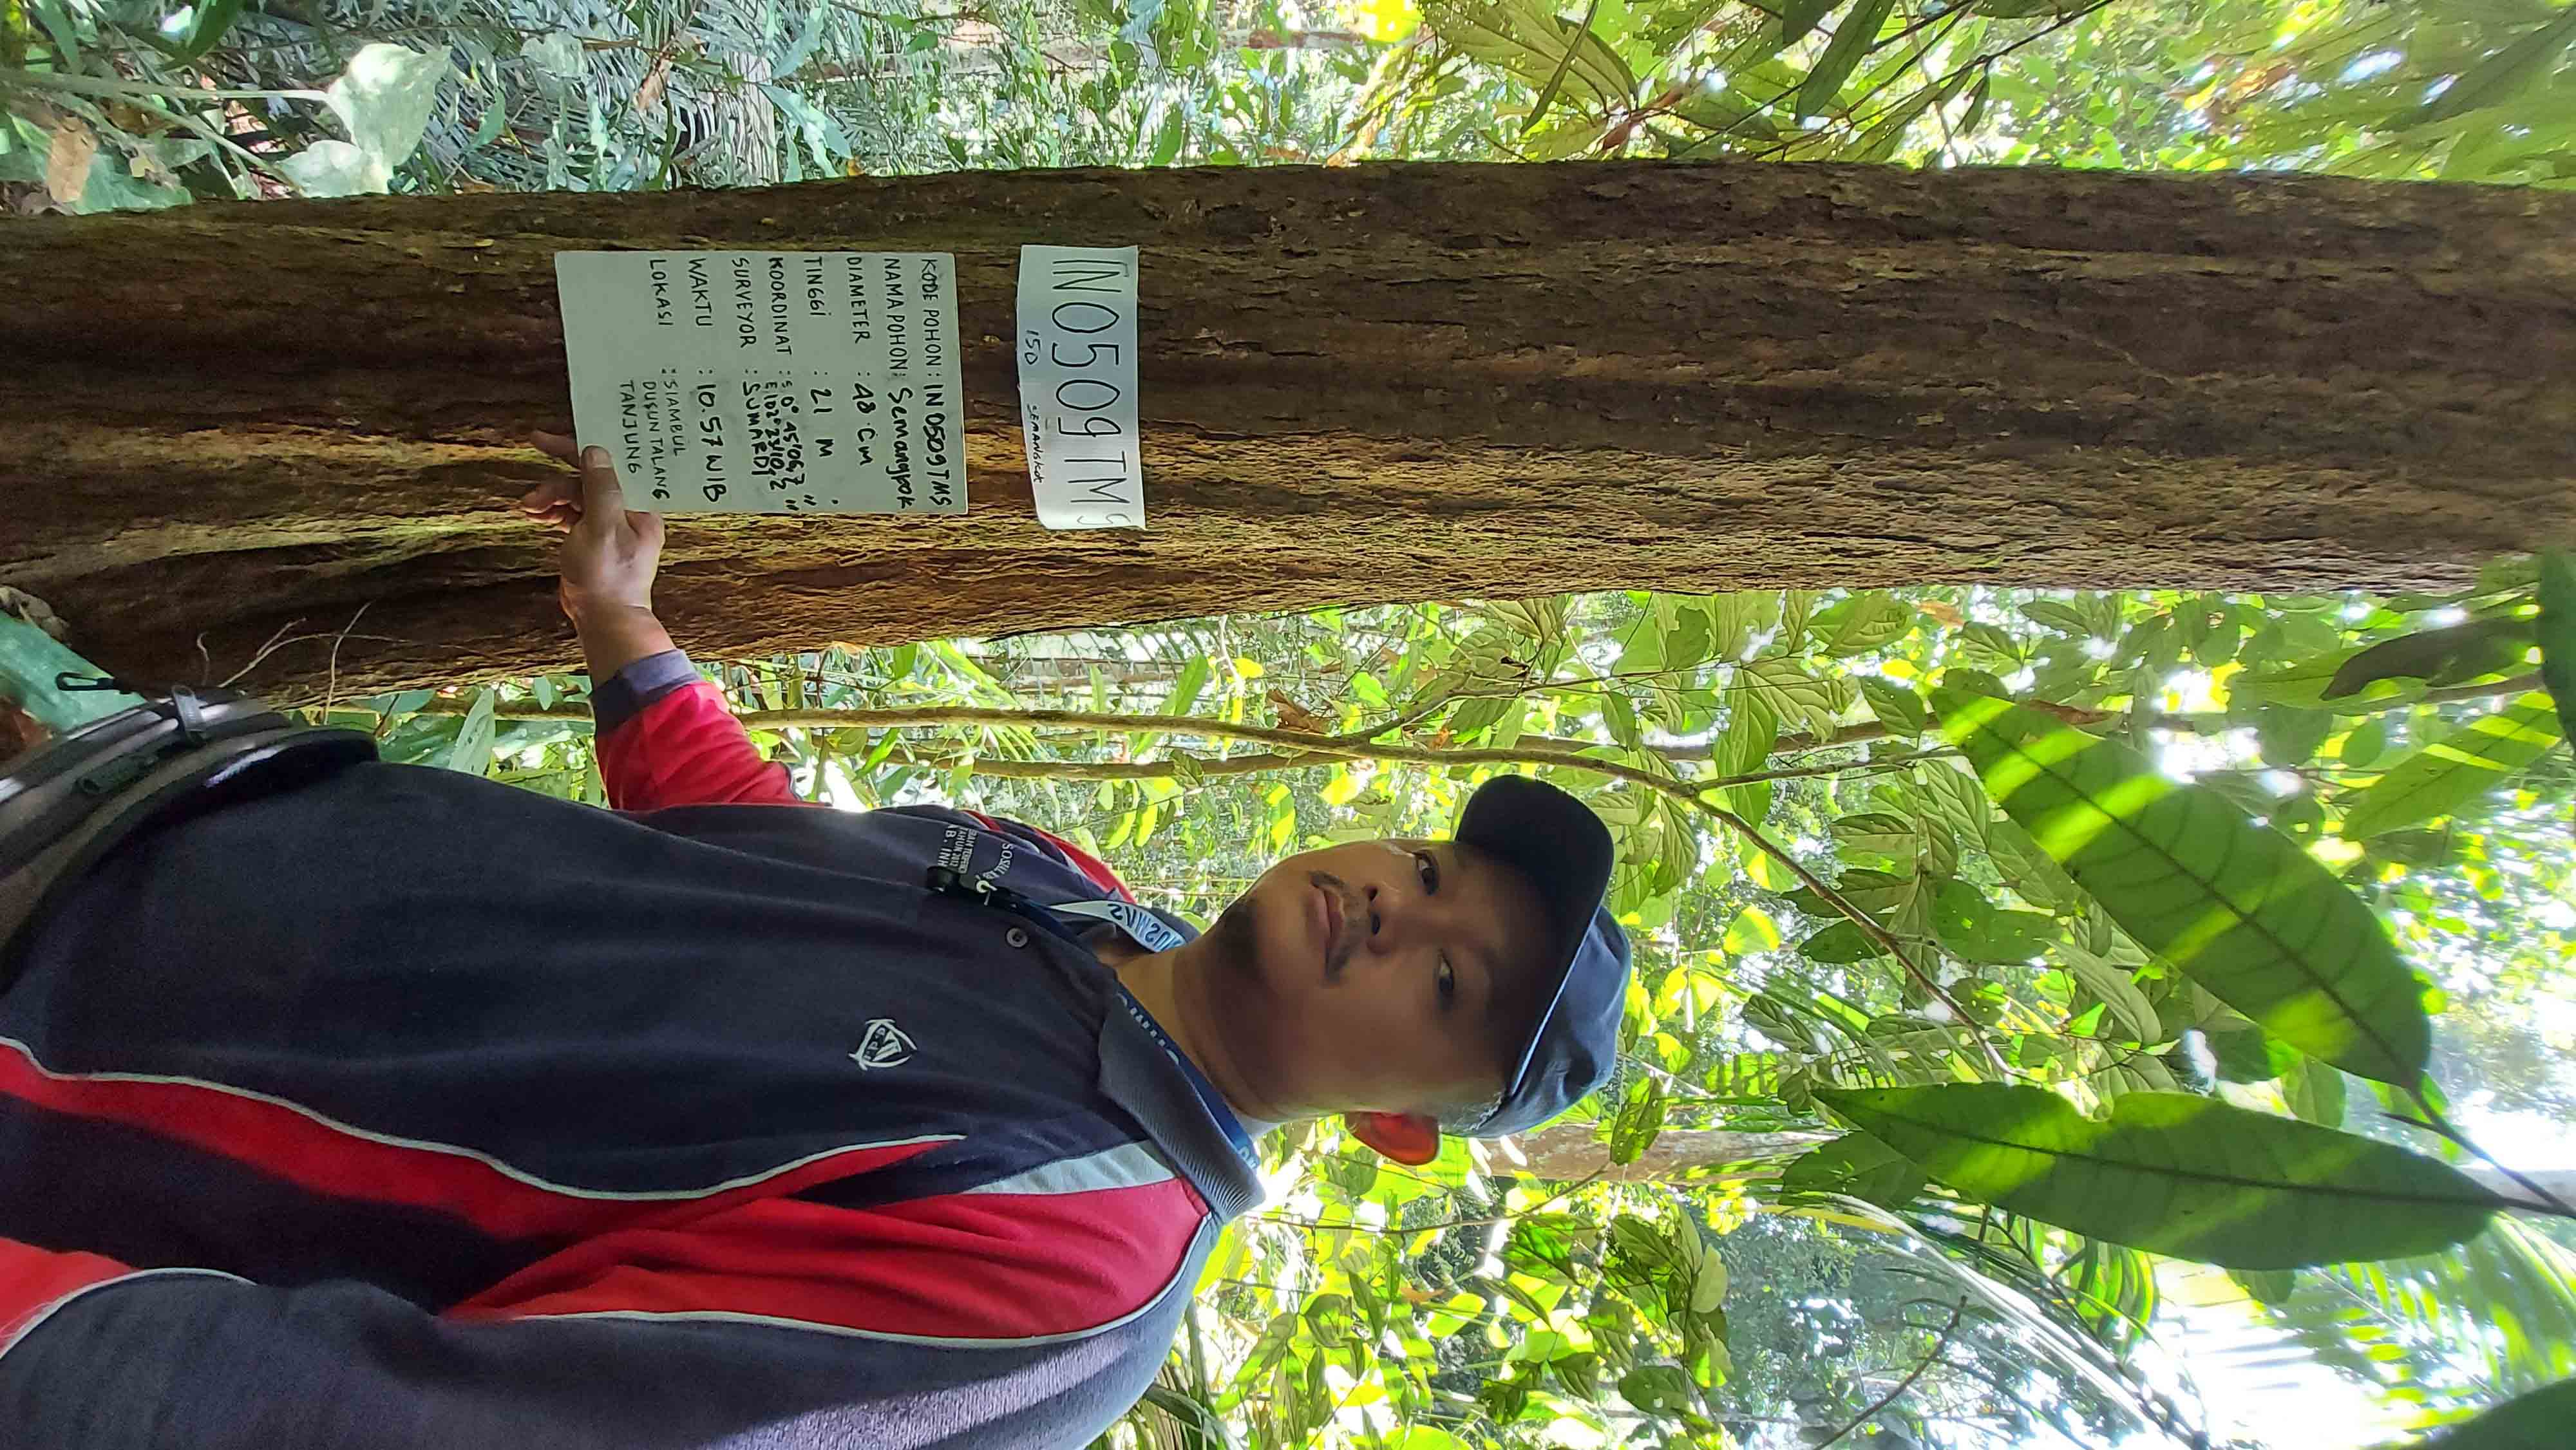 IN0509TMS
150 SEMANGKOK
KODE POHON : IN0509TMS
NAMA POHON : Semangkok
DIAMETER : 48 cm
TINGGI : 21 M
KOORDINAT : S 0° 45'06,7"
E 102° 28'10,2"
SURVEYOR : SUMARDI
WAKTU : 10.57 WIB
LOKASI : SIAMBUL
DUSUN TALANG
TANJUNG
TAHUN